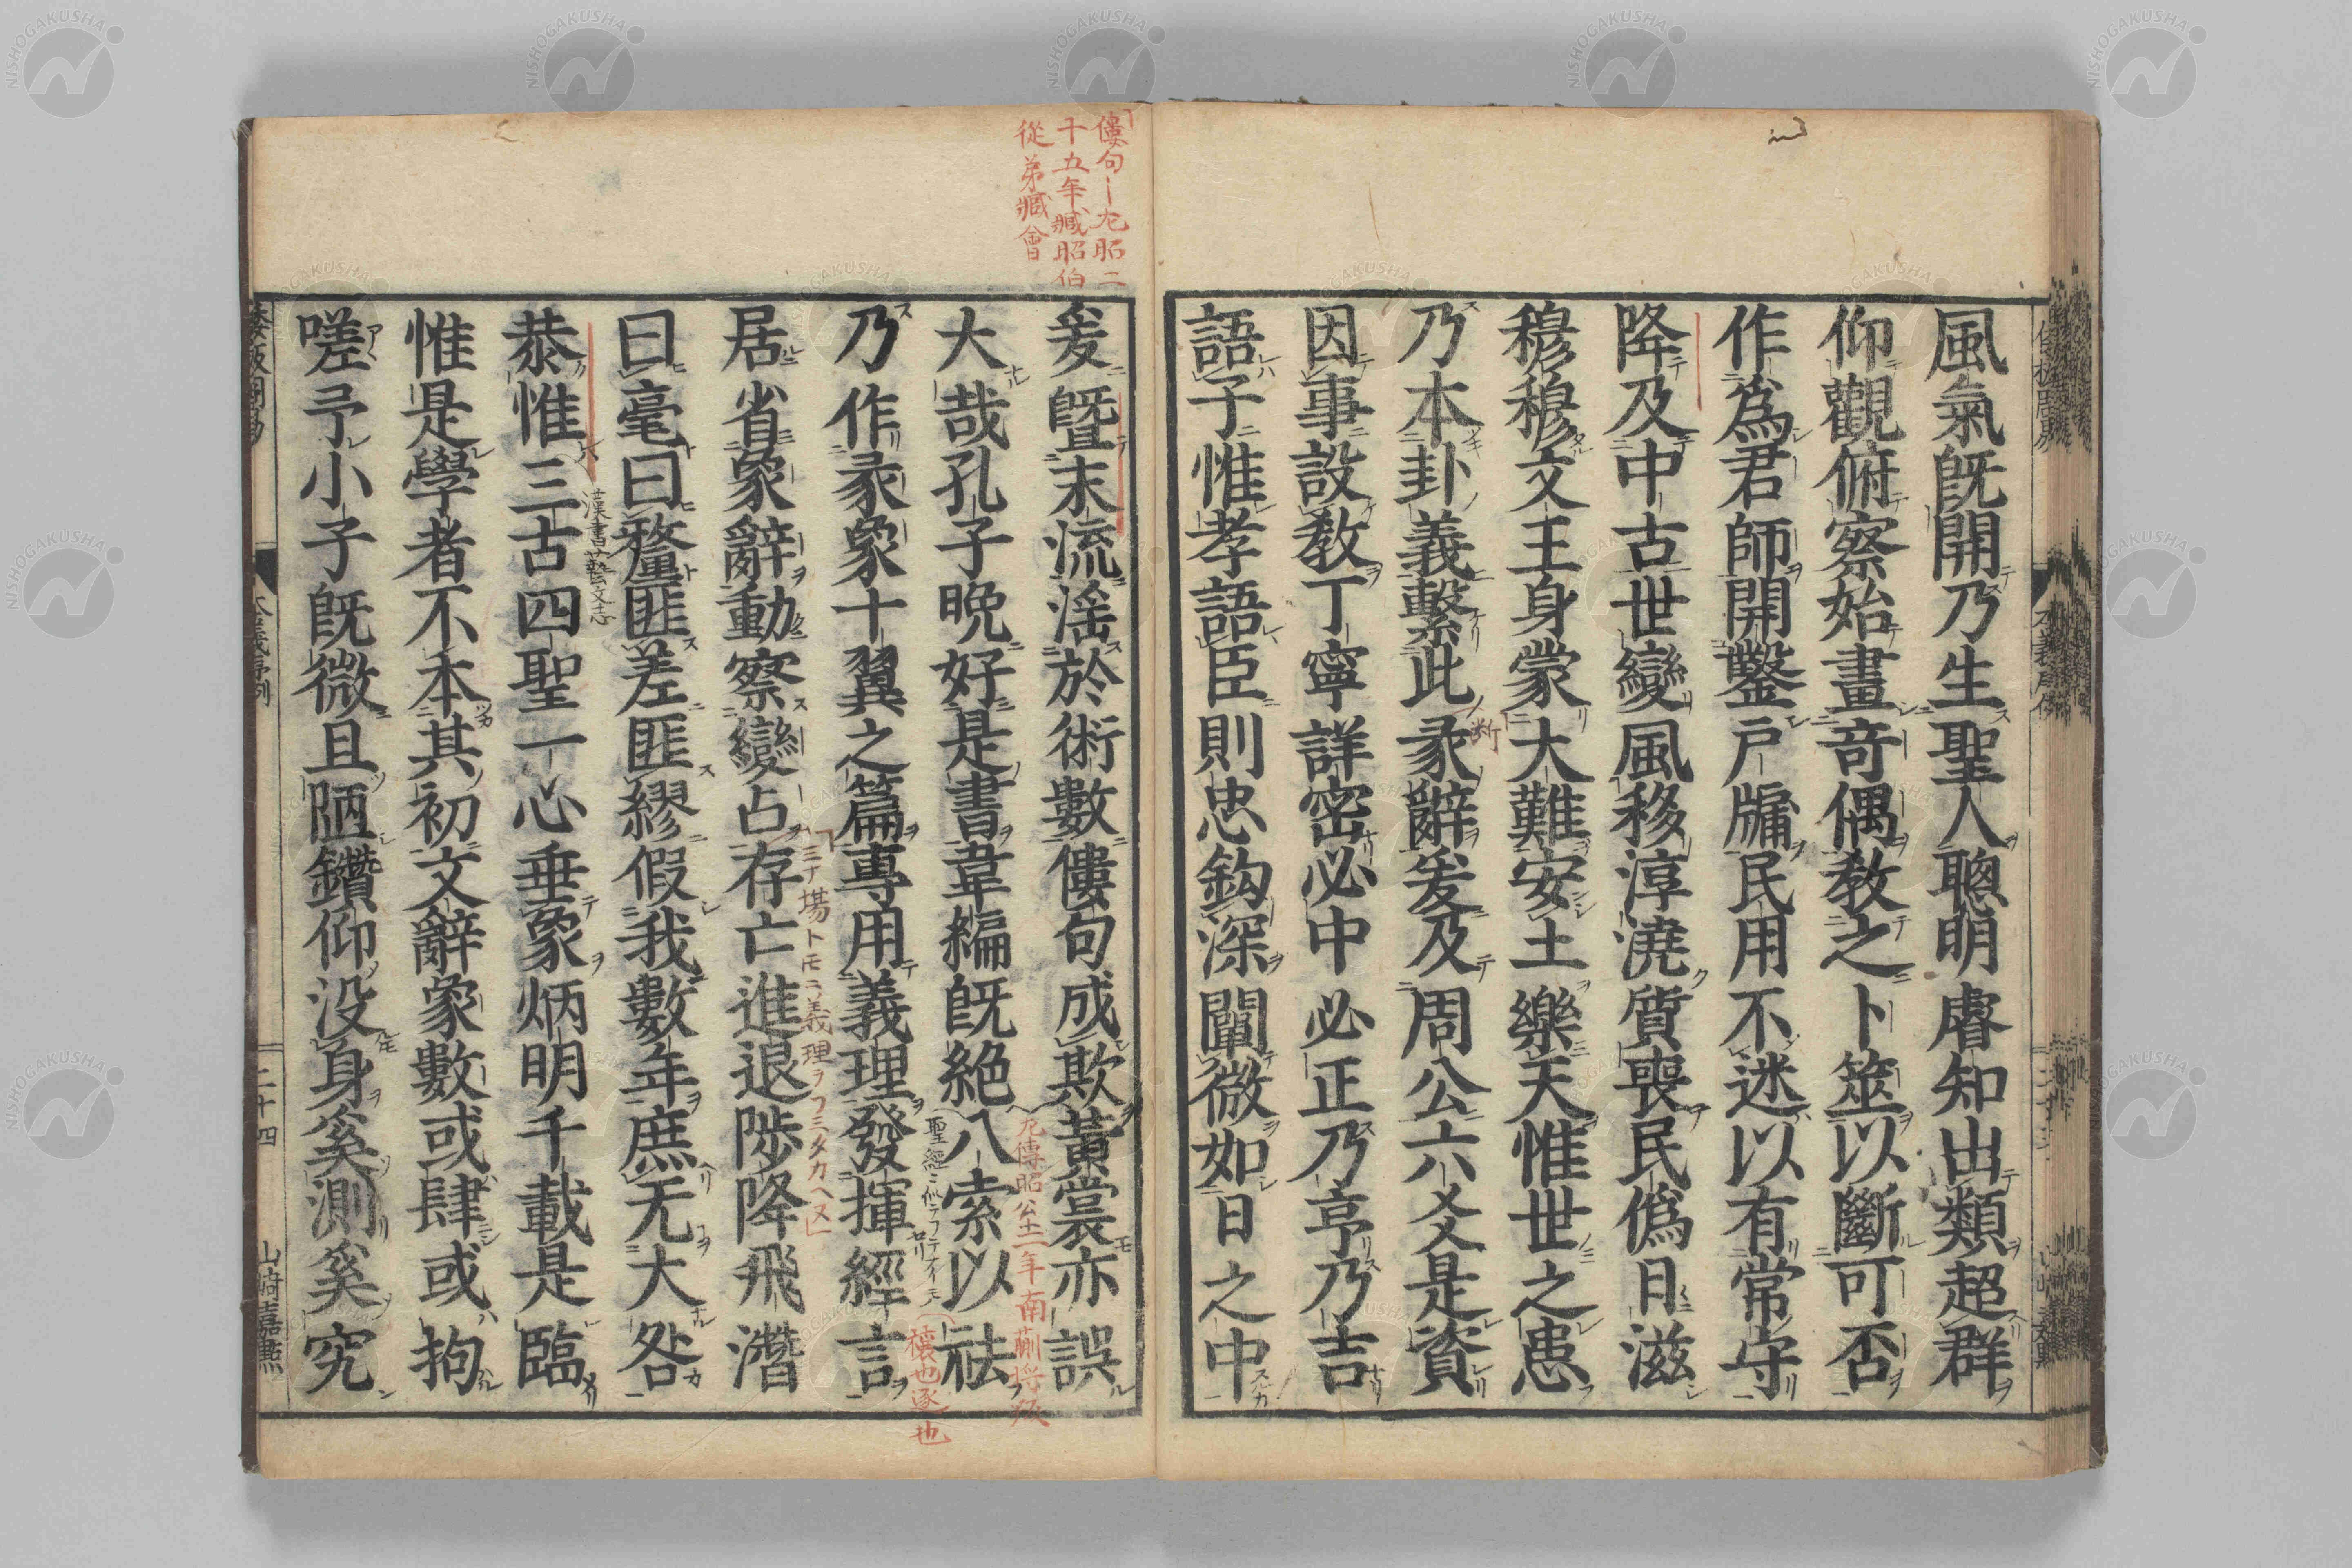 風氣既開乃生聖人聰明睿知出類超群
仰觀俯察始畫竒偶敎之卜筮以斷可否
作爲君師開鑿戶牖民用不迷以有常守
降及中古世變風移淳澆質喪民僞日滋
穆穆文王身蒙大難安土樂天惟世之患
乃本卦義繫此彖辭爰及周公六爻是資
因事設敎丁寧詳密必中必正乃亨乃吉
語子惟孝語臣則忠鈎深闡微如日之中
爰曁末流滛於術數僂句成欺黃裳亦誤
大哉孔子晩好是書韋編既絶八索以祛
乃作彖象十翼之篇專用義理發揮經言
居省象辭動察變占存亡進退陟降飛潛
曰毫曰釐匪差匪繆假我數年庶无大咎
恭惟三古四聖一心垂象炳明千載是臨
惟是學者不本其初文辭象數或肆或拘
嗟予小子既微且陋鑽仰没身奚測奚究
僂句〡左昭二
十五年臧昭伯
從弟臧會
左傳昭公十二年南蒯将叛
禳也逐也
漢書藝文志
二十四
山崎嘉點
NISHOGAKUSHA